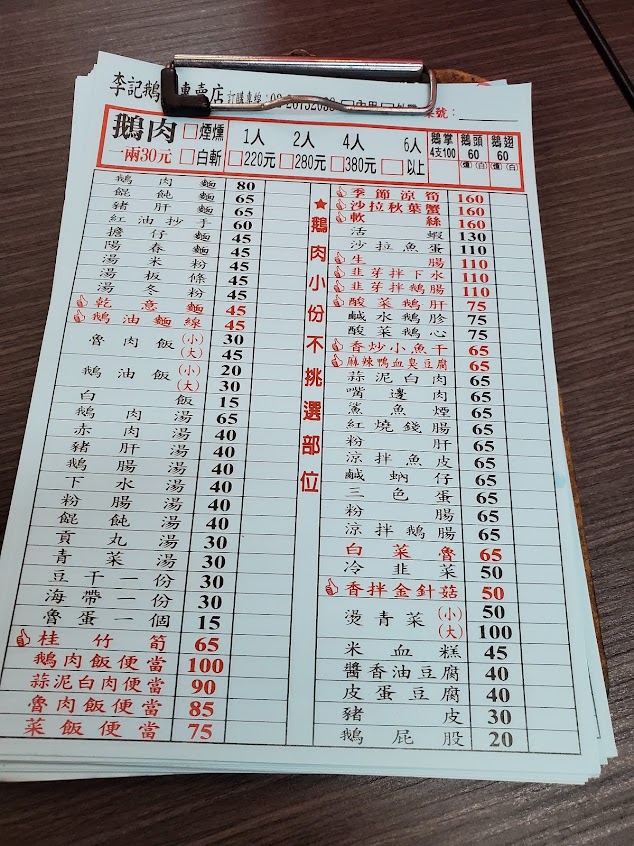 李記鵝 專賣店 訂購專線:
號:
鵝肉 □煙燻 1人 2人 4人 6人 鵝掌 鵝頭 鵝翅
一兩30元 □白斬 □220元 □280元 □380元 □以上 4支100 60 60
(燻)(白) (燻)(白)
鵝肉麵 80
餛飩麵 65
豬肝麵 65
紅油抄手 60
擔仔麵 45
陽春麵 45
湯米粉 45
湯板條 45
湯冬粉 45
乾意麵 45
鵝油麵線 45
魯肉飯 (小) 30
(大) 45
鵝油飯 (小) 20
(大) 30
白飯 15
鵝肉湯 65
赤肉湯 40
豬肝湯 40
鵝腸湯 40
下水湯 40
粉腸湯 40
餛飩湯 40
貢丸湯 30
青菜湯 30
豆干一份 30
海帶一份 30
魯蛋一個 15
桂竹筍 65
鵝肉飯便當 100
蒜泥白肉便當 90
魯肉飯便當 85
菜飯便當 75
★鵝肉小份不挑選部位
季節涼筍 160
沙拉秋葉蟹 160
軟絲 160
活蝦 130
沙拉魚蛋 110
生腸 110
韭芽拌下水 110
韭芽拌鵝腸 110
酸菜鵝肝 75
鹹水鵝胗 75
酸菜鵝心 75
香炒小魚干 65
麻辣鴨血臭豆腐 65
蒜泥白肉 65
嘴邊肉 65
鯊魚煙 65
紅燒錢腸 65
粉肝 65
涼拌魚皮 65
鹹蚋仔 65
三色蛋 65
粉腸 65
涼拌鵝腸 65
白菜魯 65
冷韭菜 50
香拌金針菇 50
燙青菜 (小) 50
(大) 100
米血糕 45
醬香油豆腐 40
皮蛋豆腐 40
豬皮 30
鵝屁股 20